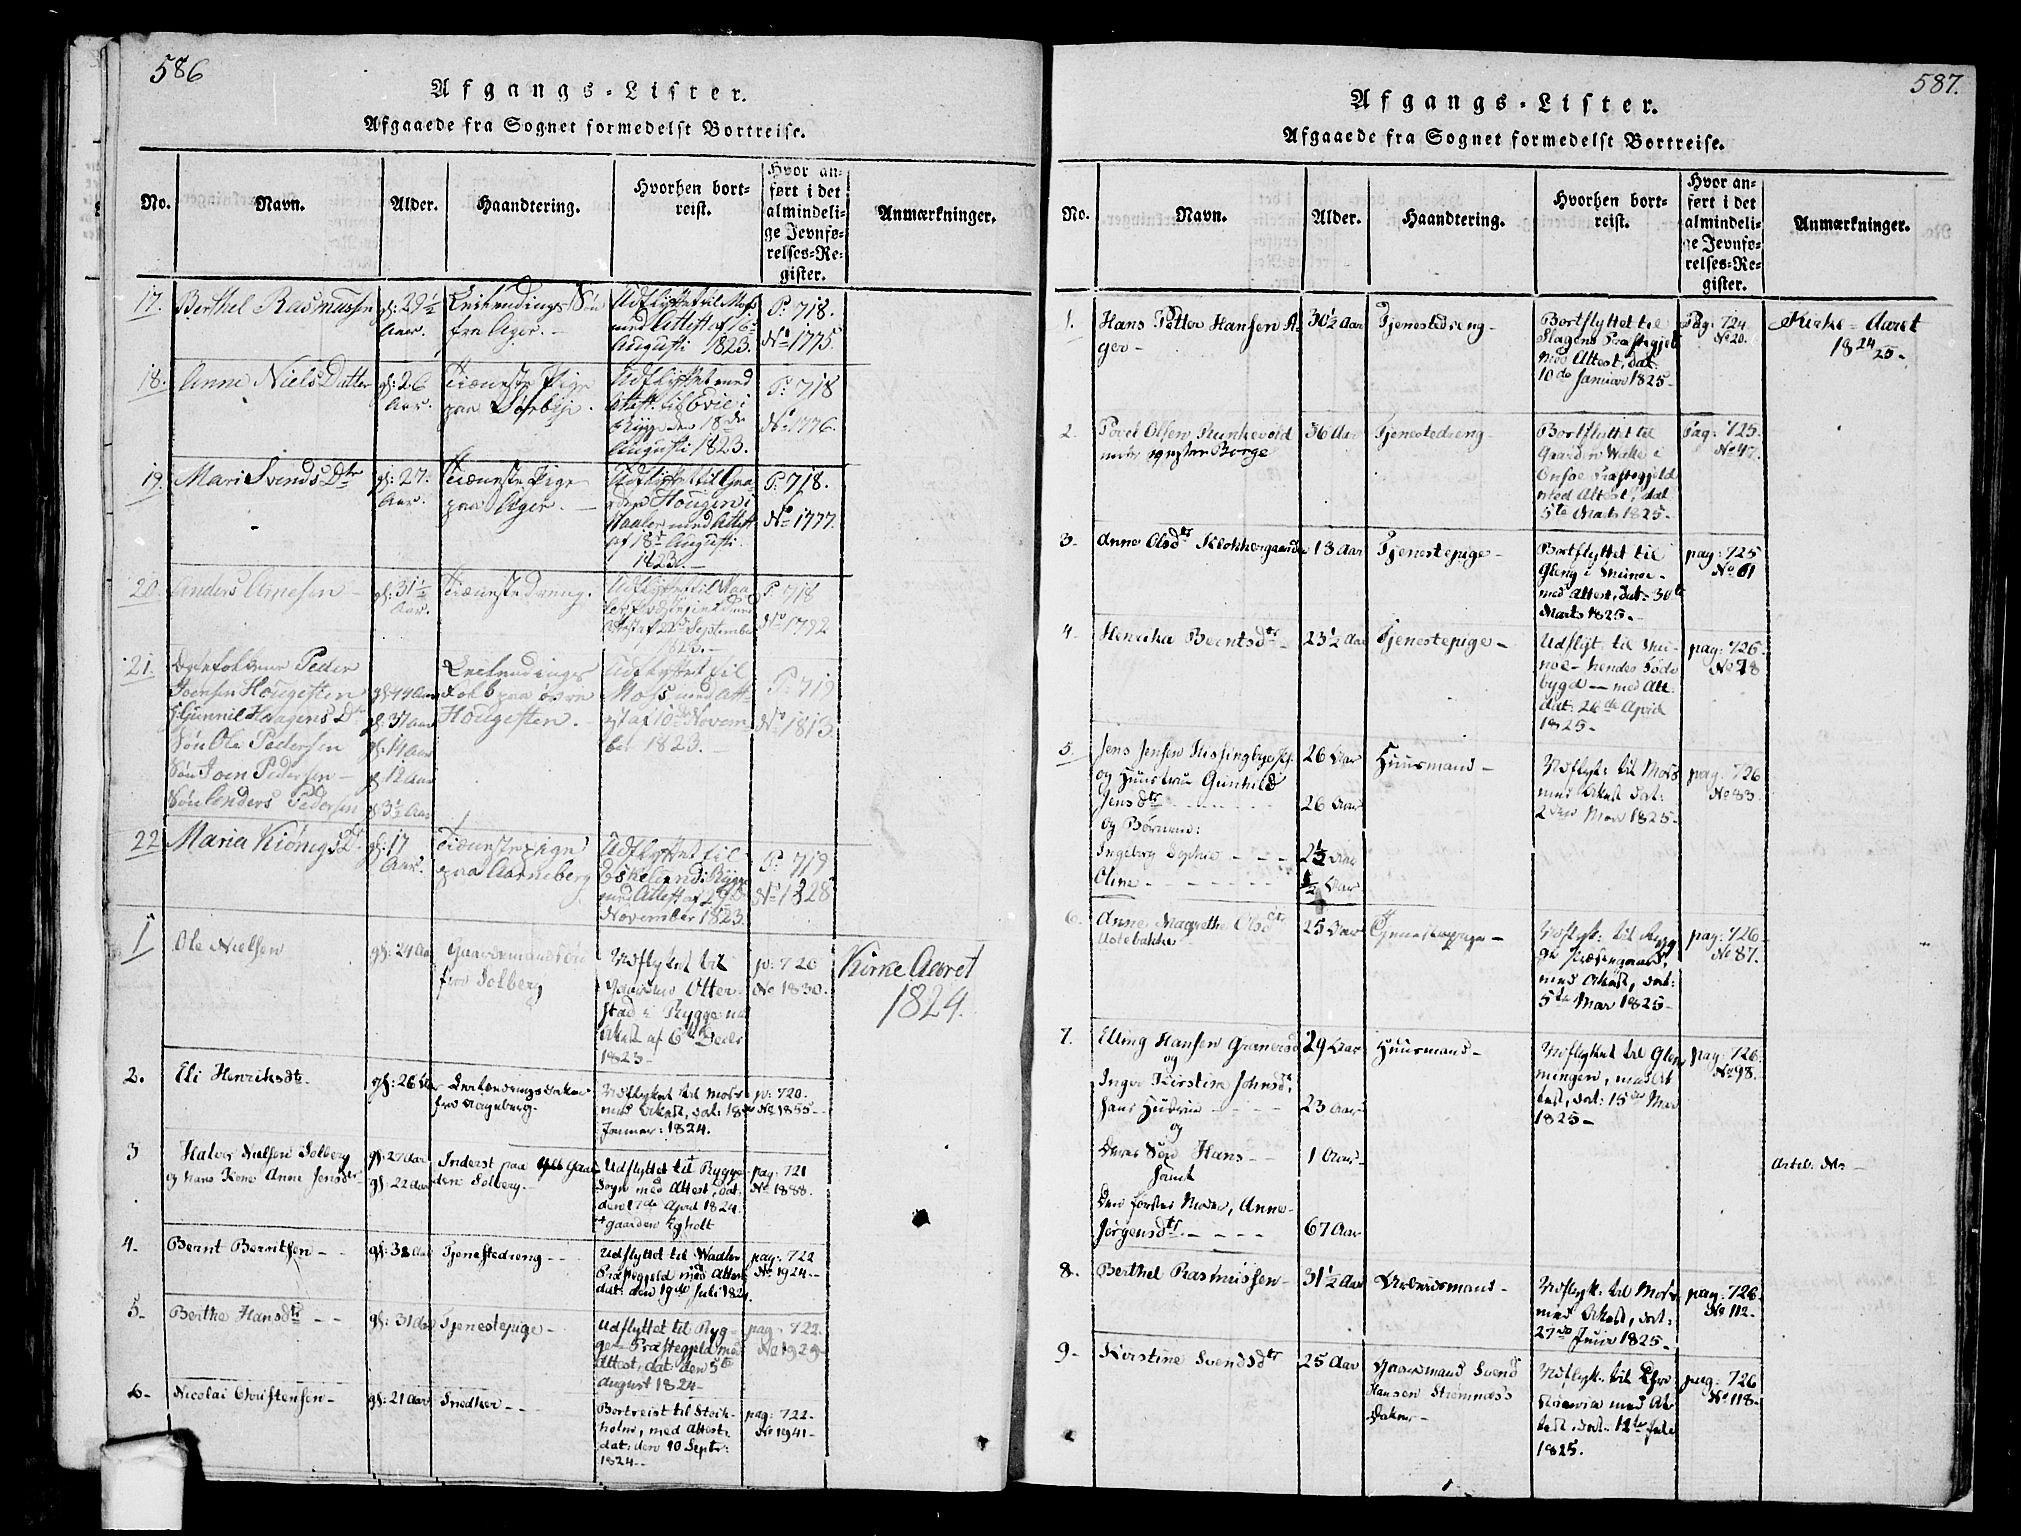 586
Afgangs-Lister.
Afgaaede fra Sognet formedelst Bortreise.
No. Navn. Alder. Haandtering. Hvorhen bort-
reist. Hvor an-
ført i det
almindeli-
ge Jevnfø-
relses-Re-
gister. Anmærkninger.
17. Berthel Rasmussen gl: 29½
Aar.
fra Ager. -
Udflyttet til Moss
med Attest af 16
Augusti 1823.
P: 718.
No 1775.
18. Anne Niels Datter gl: 26
Aar.
Tieneste Pige
paa
Udflyttet med
Attest til Evie i
Rygge den 18de
Augusti 1823.
P: 718
No 1776.
19. Mari Svends Dtr gl: 27.
Aar.
Tieneste Pige
paa Ager. -
Udflyttet til Gaa-
rden Hougen i
Vaaler med Attest
af 18de Augusti
1823. -
P: 718.
No 1777.
20. Anders Arnesen - gl: 31½
Aar.
Tienestedreng.
Udflyttet til Vaa-
ler
Attest af 22de September
1823. -
P: 718
No 1792
21. Peder
Joensen Hougesten gl: 44 Aar
Gunnil Haagens Dtr gl: 37 Aar
Søn Ole Pedersen gl: 14 Aar
Søn Joen Pedersen - gl 12 Aar
Søn Anders Pedersen gl 3½ Aar
Folk paa øvre
Hougesten. -
Udflyttet til
Moss med Att-
est af 10de Novem-
ber 1823. -
P: 719
No 1813.
22 Maria Kiönigs Dr gl: 17
Aar.
Tienestepige
paa Aarneberg
Udflyttet til
Eskelund i Rygge
med Attest af 29de
November 1823.
P: 719
No 1828
1 Ole Nielsen gl: 24 Aar Gaardmandssøn
fra Solberg
Udflyttet til
Gaarden Otter-
stad i Rygge med
Attest af 6te Decbr
1823 -
p: 720
No 1830.
Kirke Aaret
1824.
2. Eli Henriksdtr. gl: 26 Aar
fra Aageberg. -
Udflyttet til Moss
med Attest, dat: 18de
Januar: 1824.
p: 720.
No 1855 -
3 Halvor Nielsen Solberg gl: 27 Aar
og hans Kone Anne Jensdtr - gl: 22 Aar
Inderst paa Gaar
den Solberg. -
Udflyttet til Rygge
Sogn med Attest, dat:
den 17de April 1824.
gaarden Egholt
pag: 721
No 1888.
4. Bernt Berntsen - - gl: 38 Aar Tjenestedreng - -
Udflyttet til Waaler
Præstegjeld med Attest
dat: den 19de Juli 1824.
pag: 722
No 1924 -
5 - Berthe Hansdtr - - gl: 31 Aar Tjenestepige -
Udflyttet til Ryg-
ge Præstegjeld med
Attest, dat: den 5te
August 1824 -
pag: 722.
No 1929 -
6 - Nicolai Christensen - gl: 21 Aar Snedker - -
Bortreist til Stock-
holm, med Attest
dat: den 10 Septr:
1824 -
pag: 722 -
No 1941 -
587.
Afgangs-Lister.
Afgaaede fra Sognet formedelst Bortreise.
No. Navn. Alder. Haandtering. Hvorhen bort-
reist. Hvor an-
ført i det
almindeli-
ge Jevnfø-
relses-Re-
gister. Anmærkninger.
1. Hans Petter Hansen A-
ger - 30½ Aar Tjenestedreng -
Bortflyttet til
Slagens Præstegjeld
med Attest, dat:
10de Januar 1825 -
Pag: 724.
No 20.
Kirke-Aaret
1824/25 -
2. Povel Olsen Runkevold
under Borge
36 Aar Tjenestedreng -
Bortflyttet til
Gaarden Walle i
Onsøe Præstegjeld
med Attest, dat
5te Marts 1825 -
Pag: 725.
No 47.
3 - Anne Olsdtr Klokkergaarden 18 Aar Tjenestepige -
Bortflyttet til
Gleng i
med Attest, dat: 30te
Marts 1825 -
pag: 725
No 61
4 - Henrika Berntsdtr - 23½ Aar Tjenestepige -
Udflyt. til
- hendes Føde-
bygd - med Att.
dat: 26de April
1825 -
pag: 726.
No 78
5 Jens Jensen
og Hustrue Gunhild
Jensdtr - - -
og Børnene:
Ingeborg Sophie - - -
Oline - - -
26 Aar
26 Aar
2½ Aar
½ Aar
Huusmand -
Udflytt: til Moss
med Attest dat:
2den Mai 1825 -
pag: 726
No 83.
6. Anne Magrethe Olsdtr
25 Aar Tjenestepige -
Udflytt: til Ryg
ge Præstegaard,
med Attest, dat:
5te Mai 1825 -
pag: 726 -
No 87.
7. Elling Hansen 29 Aar
og
Inger Kirstine Johnsdtr,
hans Hustrue - - - 23 Aar -
og
deres Søn Hans - - 1 Aar -
samt
den førstes Moder, Anne
Jørgensdtr. - - - 67 Aar
Huusmand -
Udflyttet til Glem-
mingen, med At-
test, dat: 15de Mai
1825 -
pag: 726.
No 98.
8. Berthel Rasmussen - 31½ Aar Arbeidsmand -
Udflytt: til Moss
med Attest, dat:
27de Juni 1825 -
pag: 726 -
No 112 -
9 - Kirstine Svendsdtr 25 Aar Gaardmand Svend
Hansen Strømnæs's
Datter -
Udflytt: til Chri-
stiania med At-
test, dat: 12te Juli
1825.
pag: 726
No 118 -